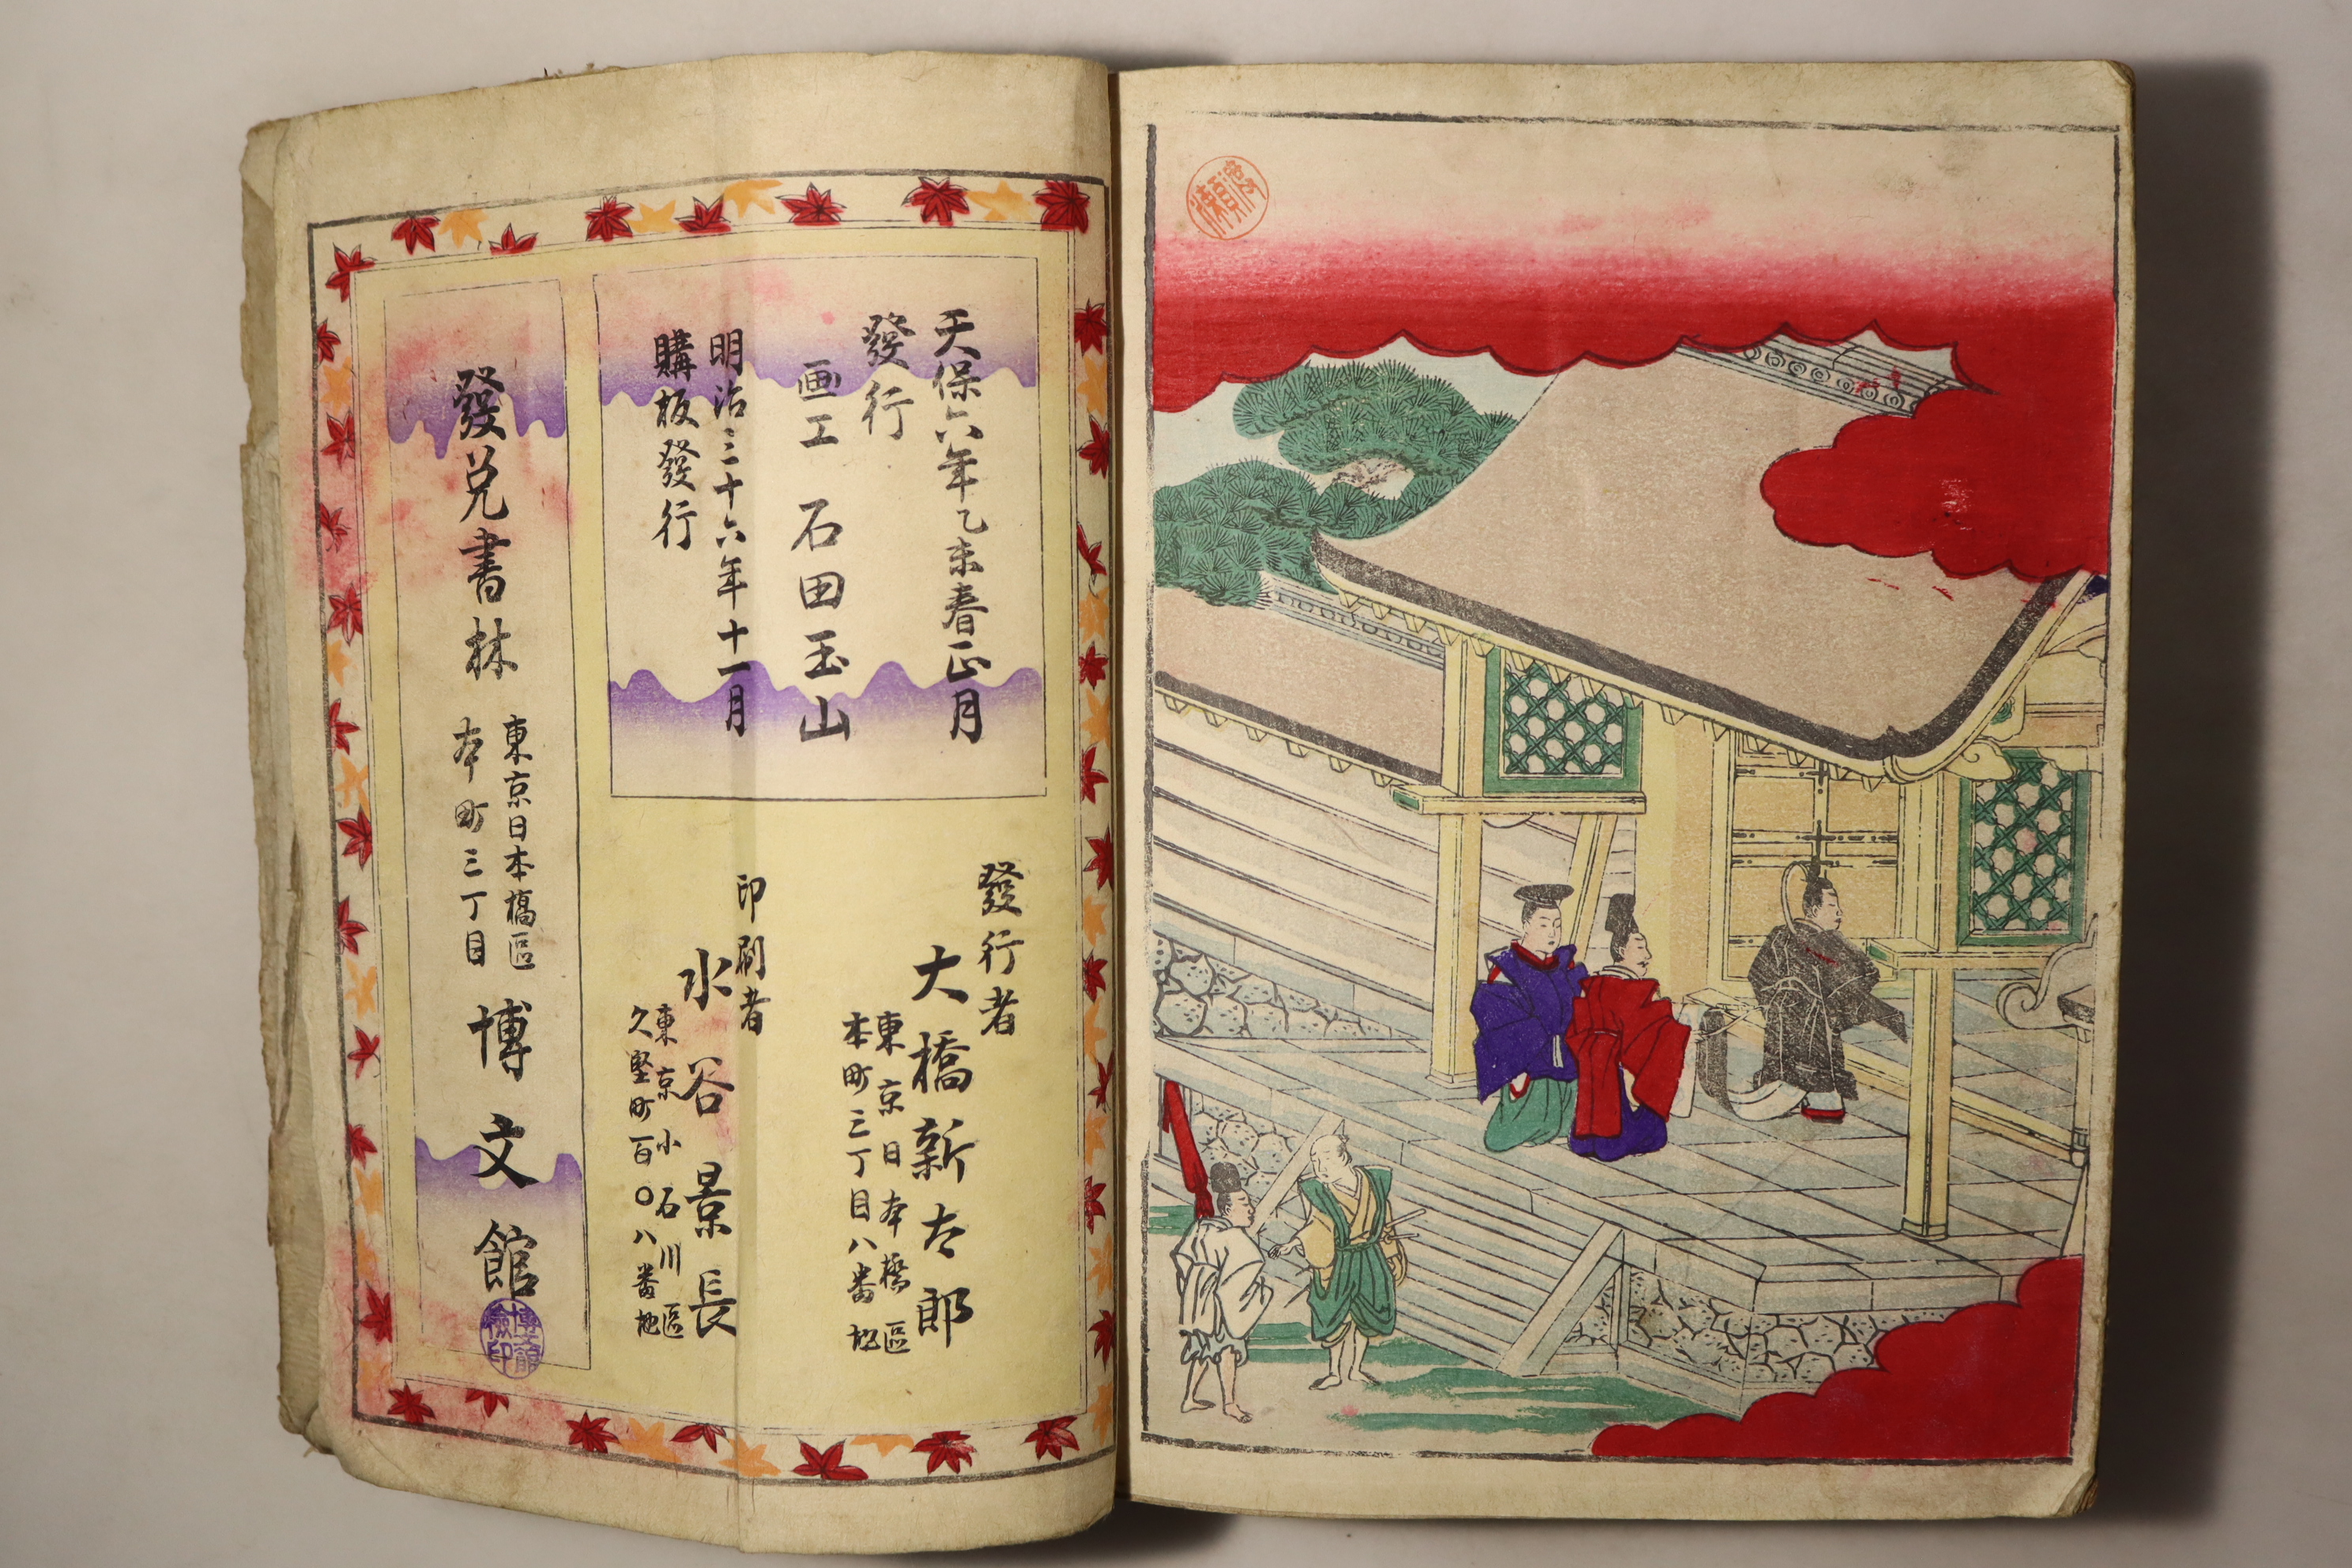 天保六年乙未春正月
發行
画工 石田玉山
明治三十六年十一月
購板發行
發行者
大橋新太郎
東京日本橋區
本町三丁目八番地
印刷者
水谷景長
東京小石川區
久堅町百〇八番地
發兌書林
東京日本橋區
本町三丁目
博文館
博文館
檢印